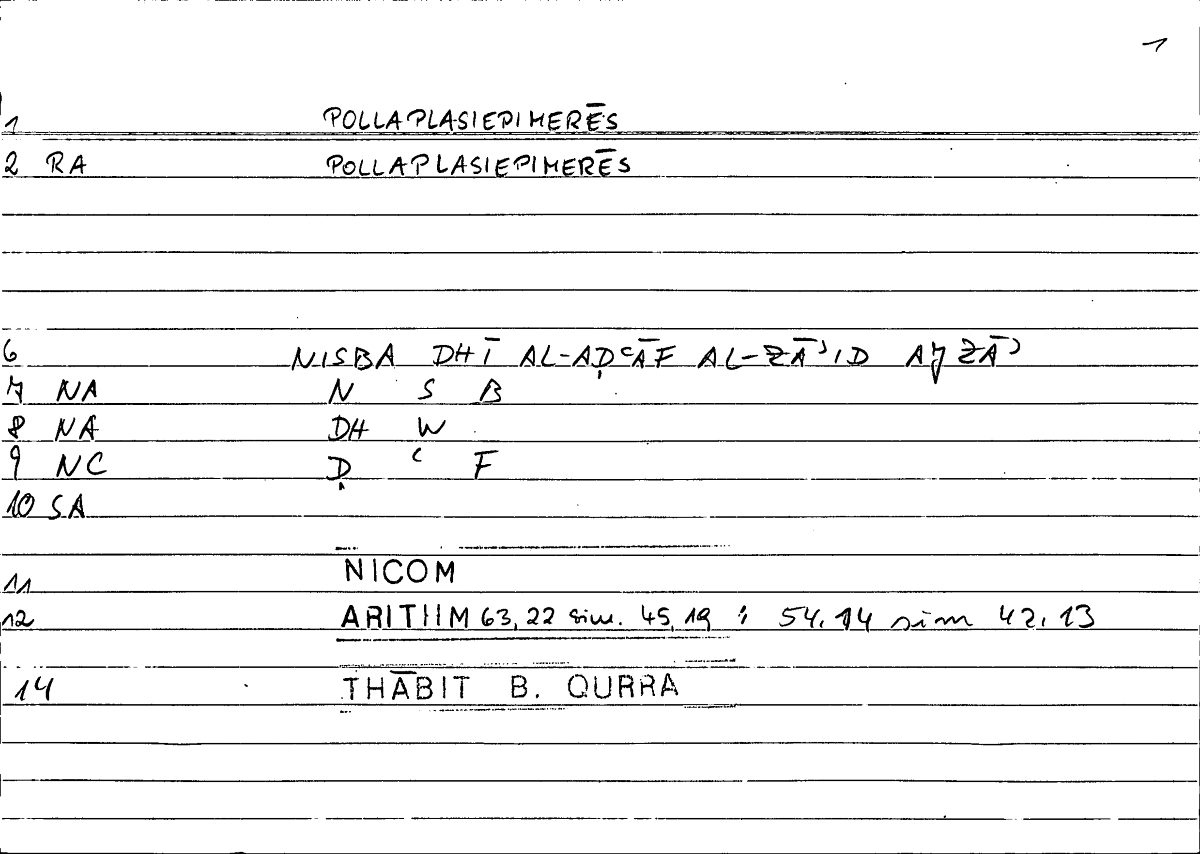 1
1 POLLAPLASIEPIMERĒS
2 RA POLLAPLASIEPIMERĒS
6 NISBA DHĪ AL-AḌʿĀF AL-ZĀʾID AJZĀʾ
7 NA N S B
8 NA DH W
9 NC Ḍ ʿ F
10 SA
11 NICOM
12 ARITHM 63,22 sim. 45,19 : 54.14 sim 42.13
14 THĀBIT B. QURRA